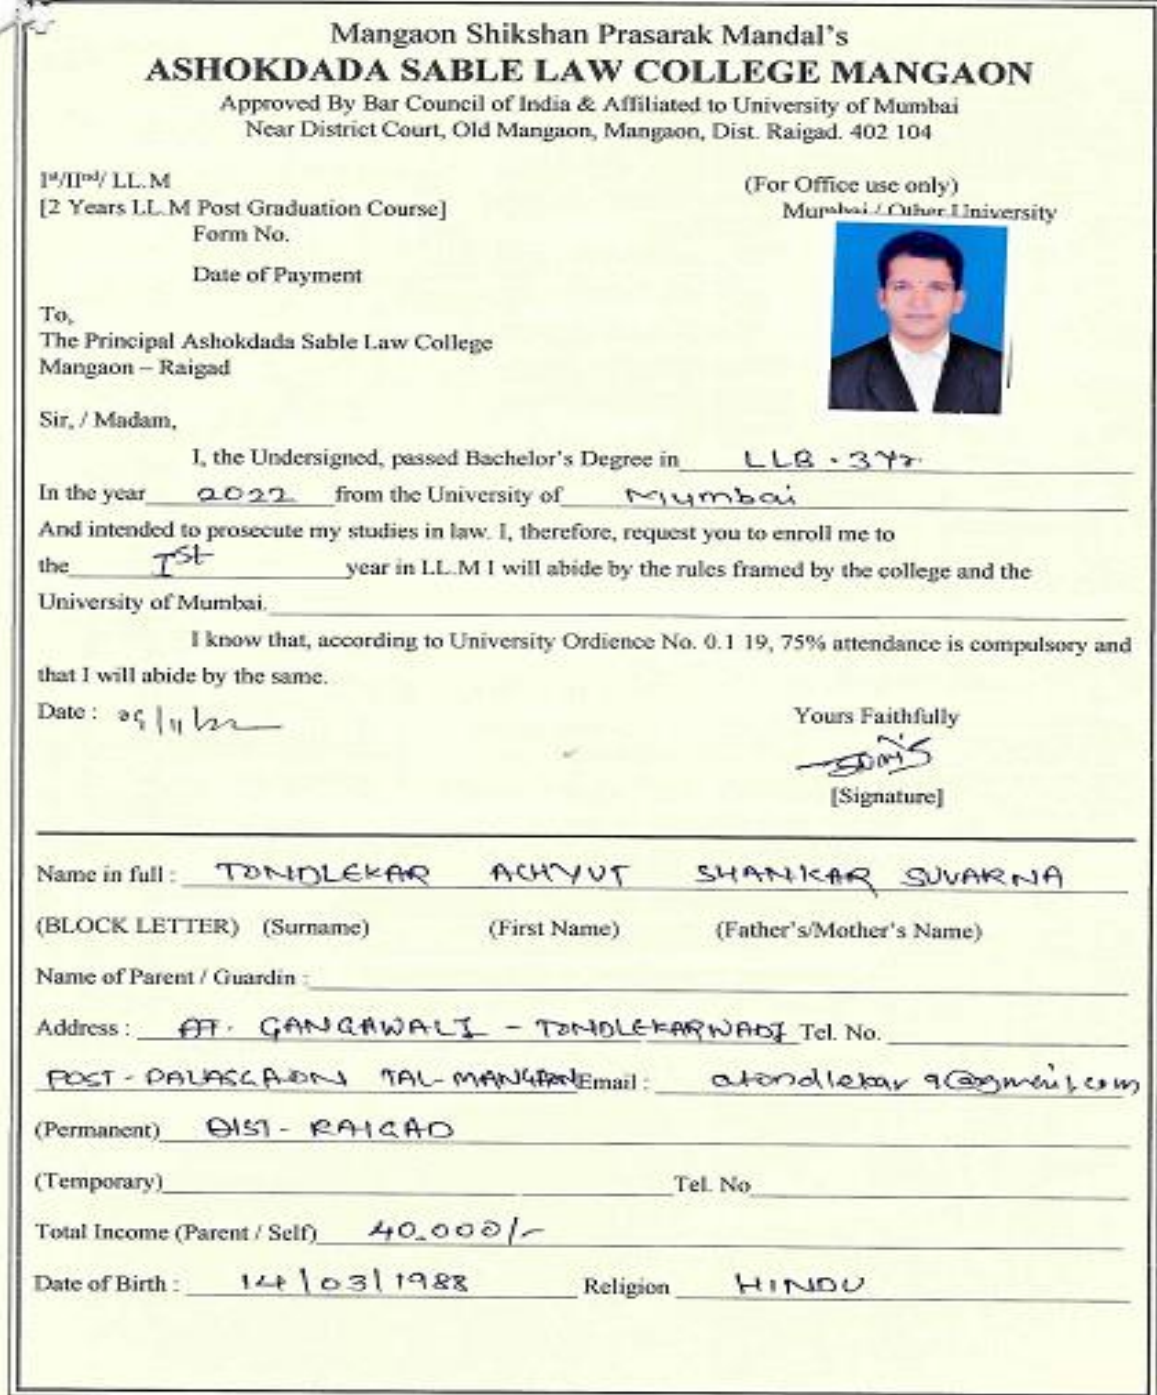 Mangaon Shikshan Prasarak Mandal's
ASHOKDADA SABLE LAW COLLEGE MANGAON
Approved By Bar Council of India & Affiliated to University of Mumbai
Near District Court, Old Mangaon, Mangaon, Dist. Raigad. 402 104
Ist/IInd/ LL.M
(For Office use only)
[2 Years LL.M Post Graduation Course]
Mumbai / Other University
Form No.
Date of Payment
To,
The Principal Ashokdada Sable Law College
Mangaon – Raigad
Sir, / Madam,
I, the Undersigned, passed Bachelor's Degree in LLB - 3Yr.
In the year 2022 from the University of Mumbai
And intended to prosecute my studies in law. I, therefore, request you to enroll me to
the Ist year in LL.M I will abide by the rules framed by the college and the
University of Mumbai.
I know that, according to University Ordience No. 0.1 19, 75% attendance is compulsory and
that I will abide by the same.
Date :
Yours Faithfully
[Signature]
Name in full : TONDLEKAR ACHYUT SHANKAR SUVARNA
(BLOCK LETTER) (Surname) (First Name) (Father's/Mother's Name)
Name of Parent / Guardin :
Address : AT. GANGAWALI - TONDLEKARWADI Tel. No.
POST - PALASGAON TAL - MANGAON Email : atondlekar9@gmail.com
(Permanent) DIST - RAIGAD
(Temporary) Tel. No
Total Income (Parent / Self) 40,000/-
Date of Birth : 14/03/1988 Religion HINDU